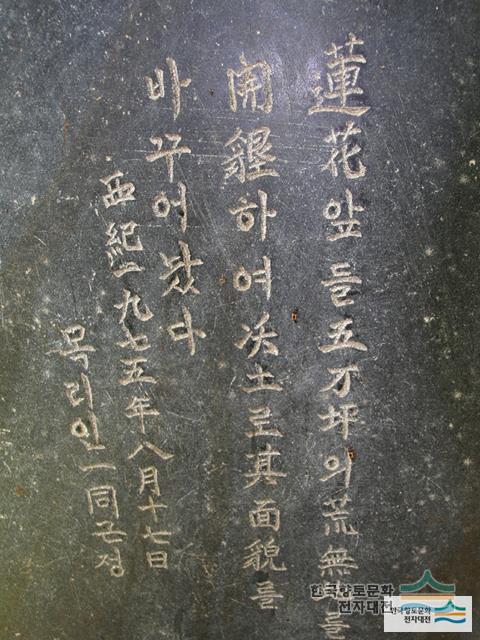 蓮花앞들五万坪의荒無를
開墾하여沃土로其面貌를
바꾸어놨다
西紀一九七五年八月十七日
목리인一同근정
한국향토문화
전자대전
한국향토문화
전자대전